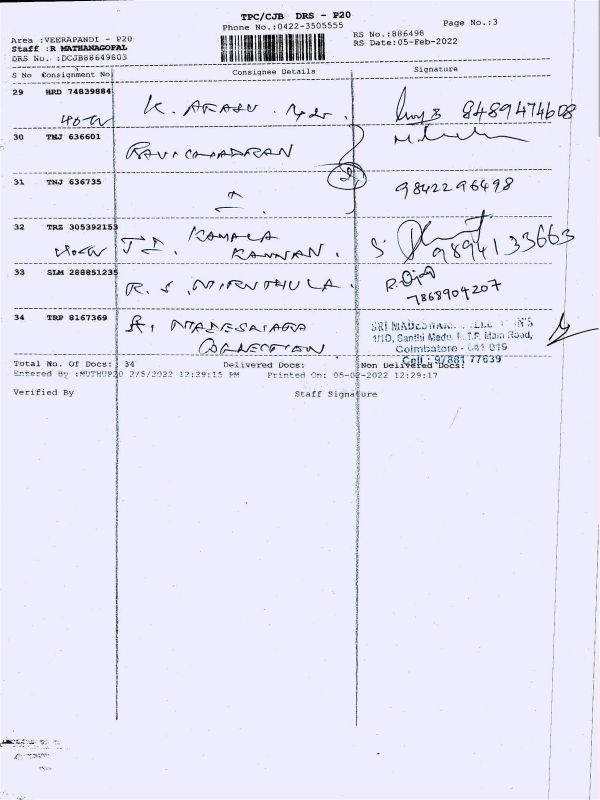 TPC/CJB DRS - P20
Phone No.:0422-3505555
Page No.:3
Area :VEERAPANDI - P20
RS No.:886498
Staff :R MATHANAGOPAL
RS Date:05-Feb-2022
DRS No. :DCJB88649803
S No Consignment No Consignee Details Signature
29 HRD 74839884 K. ARASU. 8489474608
30 TMJ 636601 RAVICHANDRAN
31 TNJ 636735 9842296498
32 TRZ 305392153 KAMALA KANNAN. 9894133663
33 SLM 288851235 R. S. MIRNTHULA. 7868904207
34 TRP 8167369 COLLECTION
SRI
1/1D, Santhi Medu, Main Road,
Coimbatore - 641 019
Cell : 97881 77639
Total No. Of Docs: 34 Delivered Docs: Non Delivered Docs:
Entered By :MUTHUP20 2/5/2022 12:29:15 PM Printed On: 05-02-2022 12:29:17
Verified By Staff Signature